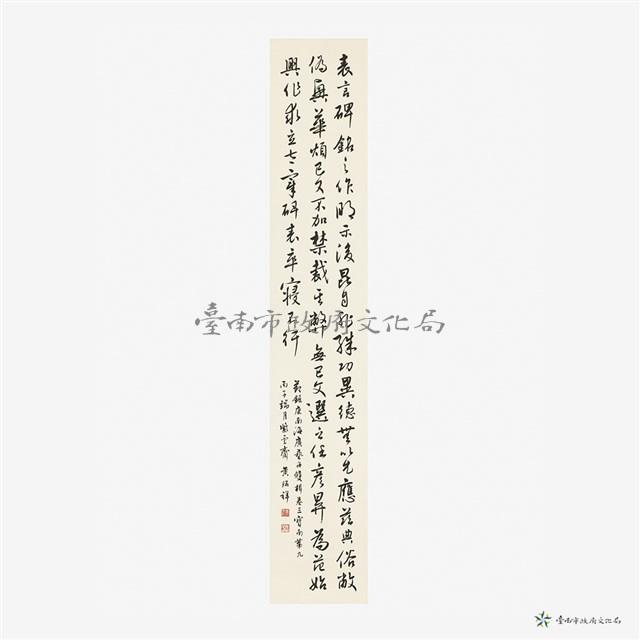 表言碑銘之作明示後昆自非殊功異德無以允應茲典俗敝
偽興華煩已久不加禁裁其弊無已文選之任彥昇為范始
興作求立太宰碑表卒寢不行
節錄康南海廣藝舟雙楫卷三寶南第九
丙子端月 雲齋 黃 祥
臺南市政府文化局
臺南市政府文化局